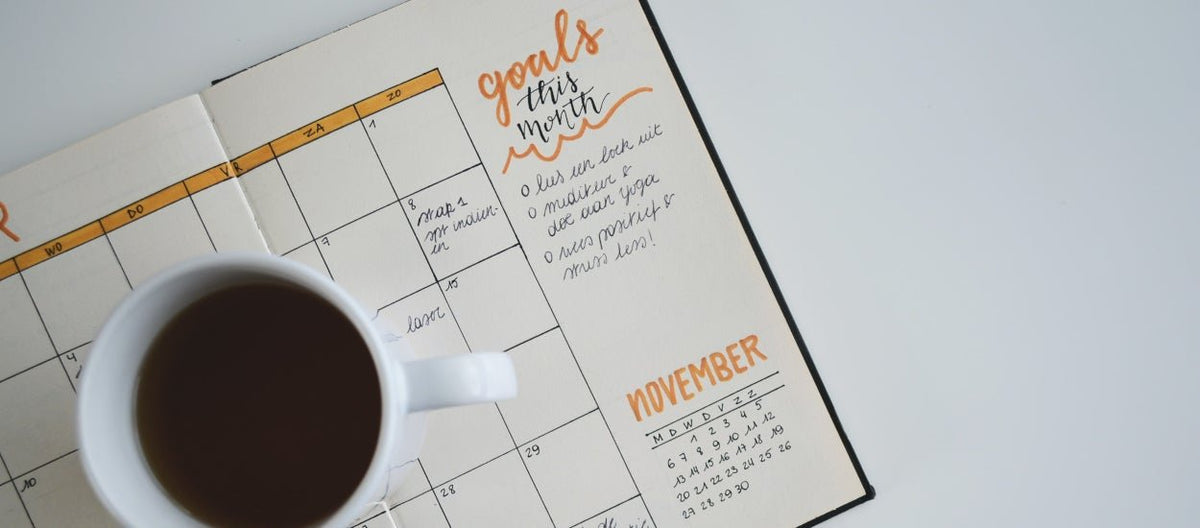 R
WO
DO
VR
ZA
ZO
1
4
7
8
stap 1
spt indien-
en
15
lasor
10
28
29
de
goals
this
month
o lees een boek uit
o mediteer &
doe aan yoga
o wees positief &
stress less!
NOVEMBER
M D W D V Z Z
1 2 3 4 5
6 7 8 9 10 11 12
13 14 15 16 17 18 19
20 21 22 23 24 25 26
27 28 29 30